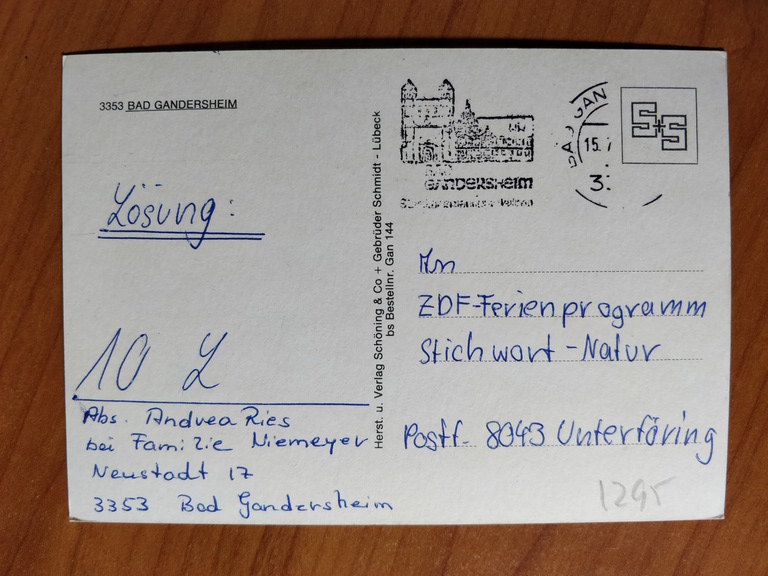 3353 BAD GANDERSHEIM
Lösung:
10 L
Abs. Andrea Ries
bei Familie Niemeyer
Neustadt 17
3353 Bad Gandersheim
Herst. u. Verlag Schöning & Co + Gebrüder Schmidt - Lübeck
bs Bestellnr. Gan 144
BAD
GANDERSHEIM
BAD GAN
15.7
3
S+S
An
ZDF-Ferienprogramm
Stichwort-Natur
Postf. 8043 Unterföring
1295